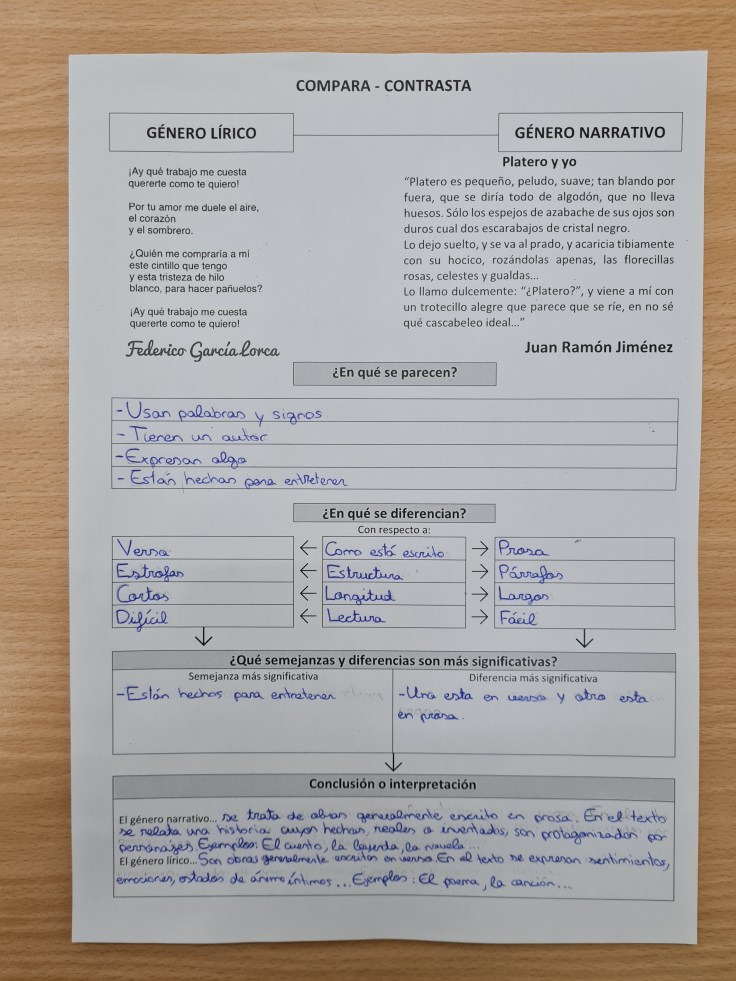 COMPARA - CONTRASTA
GÉNERO LÍRICO
GÉNERO NARRATIVO
¡Ay qué trabajo me cuesta
quererte como te quiero!
Por tu amor me duele el aire,
el corazón
y el sombrero.
¿Quién me compraría a mí
este cintillo que tengo
y esta tristeza de hilo
blanco, para hacer pañuelos?
¡Ay qué trabajo me cuesta
quererte como te quiero!
Federico García Lorca
Platero y yo
“Platero es pequeño, peludo, suave; tan blando por
fuera, que se diría todo de algodón, que no lleva
huesos. Sólo los espejos de azabache de sus ojos son
duros cual dos escarabajos de cristal negro.
Lo dejo suelto, y se va al prado, y acaricia tibiamente
con su hocico, rozándolas apenas, las florecillas
rosas, celestes y gualdas...
Lo llamo dulcemente: “¿Platero?”, y viene a mí con
un trotecillo alegre que parece que se ríe, en no sé
qué cascabeleo ideal...”
Juan Ramón Jiménez
¿En qué se parecen?
- Usan palabras y signos
- Tienen un autor
- Expresan algo
- Están hechas para entretener
¿En qué se diferencian?
Con respecto a:
Verso ← Como está escrito → Prosa
Estrofas ← Estructura → Párrafos
Cortos ← Longitud → Largos
Difícil ← Lectura → Fácil
¿Qué semejanzas y diferencias son más significativas?
Semejanza más significativa
- Están hechos para entretener
Diferencia más significativa
- Uno esta en verso y otro esta
en prosa.
Conclusión o interpretación
El género narrativo... se trata de obras generalmente escrito en prosa. En el texto
se relata una historia cuyos hechos, reales o inventados, son protagonizados por
personajes. Ejemplos: El cuento, la leyenda, la novela...
El género lírico... Son obras generalmente escritos en verso. En el texto se expresan sentimientos,
emociones, estados de ánimo íntimos... Ejemplos: El poema, la canción...